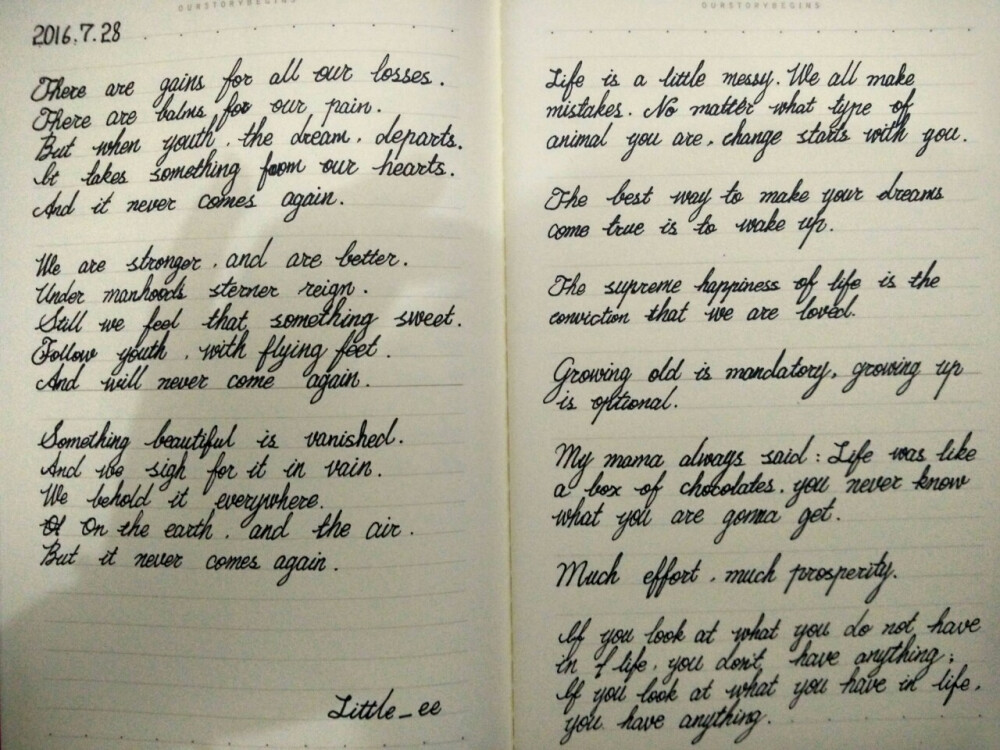 OURSTORYBEGINS
2016.7.28
There are gains for all our losses.
There are balms for our pain.
But when youth, the dream, departs.
It takes something from our hearts.
And it never comes again.
We are stronger, and are better.
Under manhood's sterner reign.
Still we feel that something sweet.
Follow youth, with flying feet.
And will never come again.
Something beautiful is vanished.
And we sigh for it in vain.
We behold it everywhere.
On the earth, and the air.
But it never comes again.
Little_ee
OURSTORYBEGINS
Life is a little messy. We all make
mistakes. No matter what type of
animal you are, change starts with you.
The best way to make your dreams
come true is to wake up.
The supreme happiness of life is the
conviction that we are loved.
Growing old is mandatory, growing up
is optional.
My mama always said: Life was like
a box of chocolates. you never know
what you are gonna get.
Much effort, much prosperity.
If you look at what you do not have
in life, you don't have anything;
If you look at what you have in life,
you have anything.